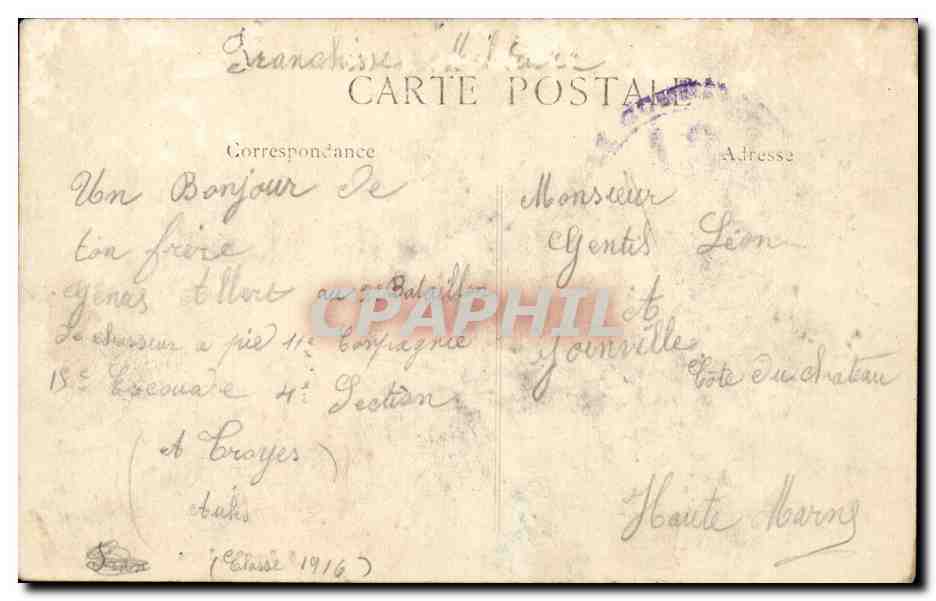 Franchise Militaire
CARTE POSTALE
Correspondance
Adresse
Un Bonjour de
ton frère
Albert au Bataillon
de chasseur a pied 11e Compagnie
15e Escouade 4e Section
(A Troyes)
Aube
(Classe 1916)
Monsieur
Gentis Léon
A
Joinville
Côte du chateau
Haute Marne
CPAPHIL